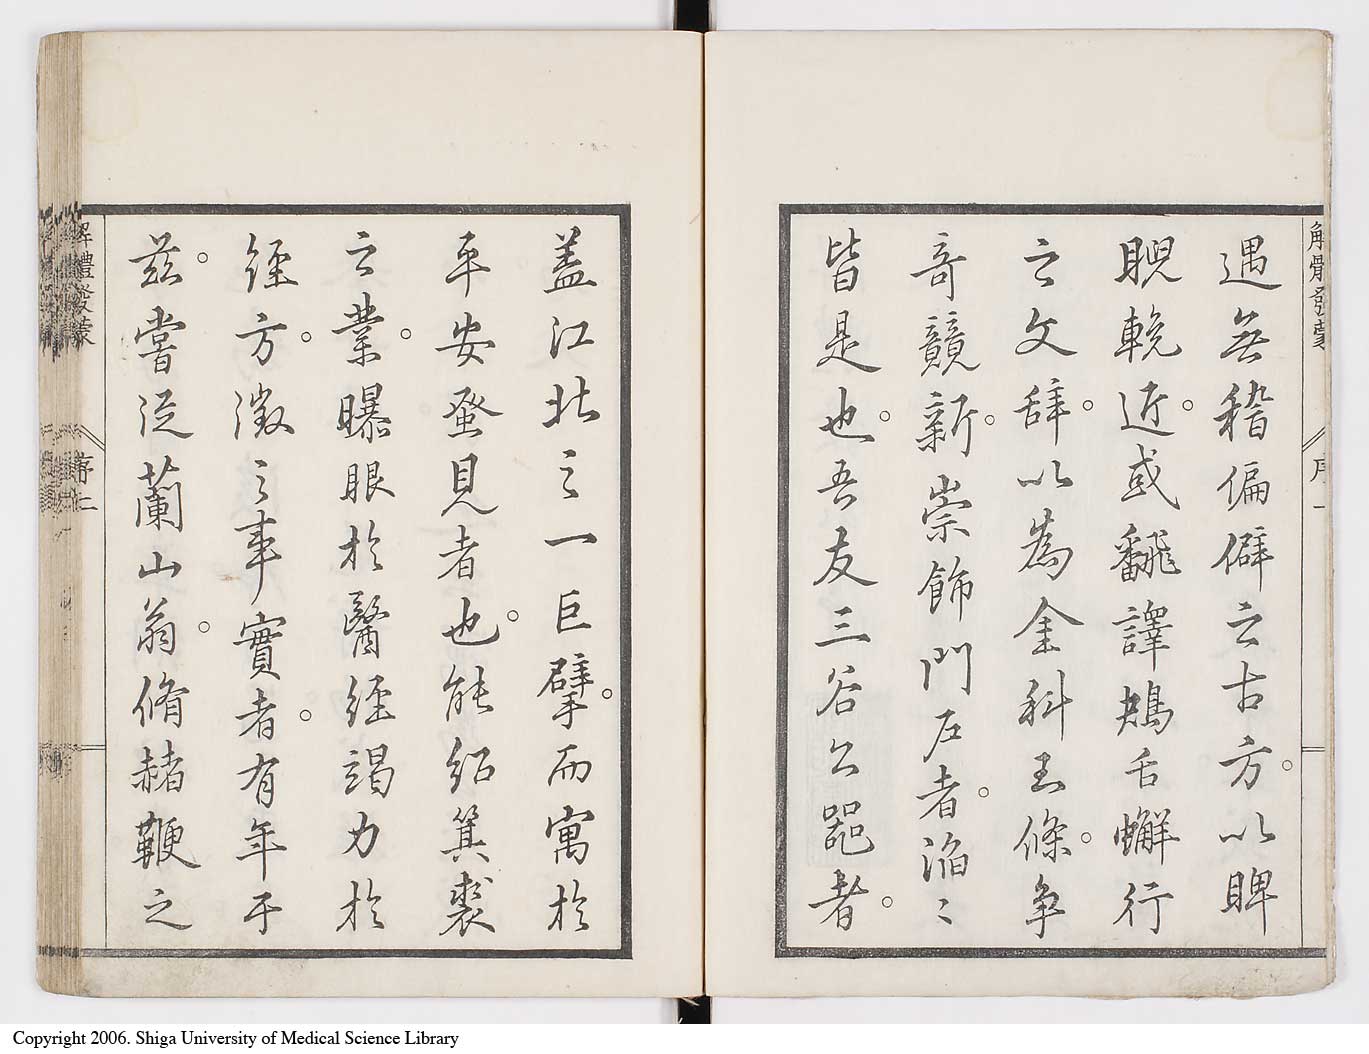 解體發蒙
序一
遇無稽偏僻之古方。以睥
睨輓近。或翻譯鴂舌蠏行
之文辞。以為金科玉條。争
奇競新。崇飾門戸者。滔〻
皆是也。吾友三谷公噐者。
蓋江北之一巨擘。而寓於
平安蚤見者也。能紹箕裘
之業。曝眼於醫經竭力於
經方。澂之事實者。有年于
茲。嘗從蘭山翁。脩赭鞭之
解體發蒙
序二
Copyright 2006. Shiga University of Medical Science Library